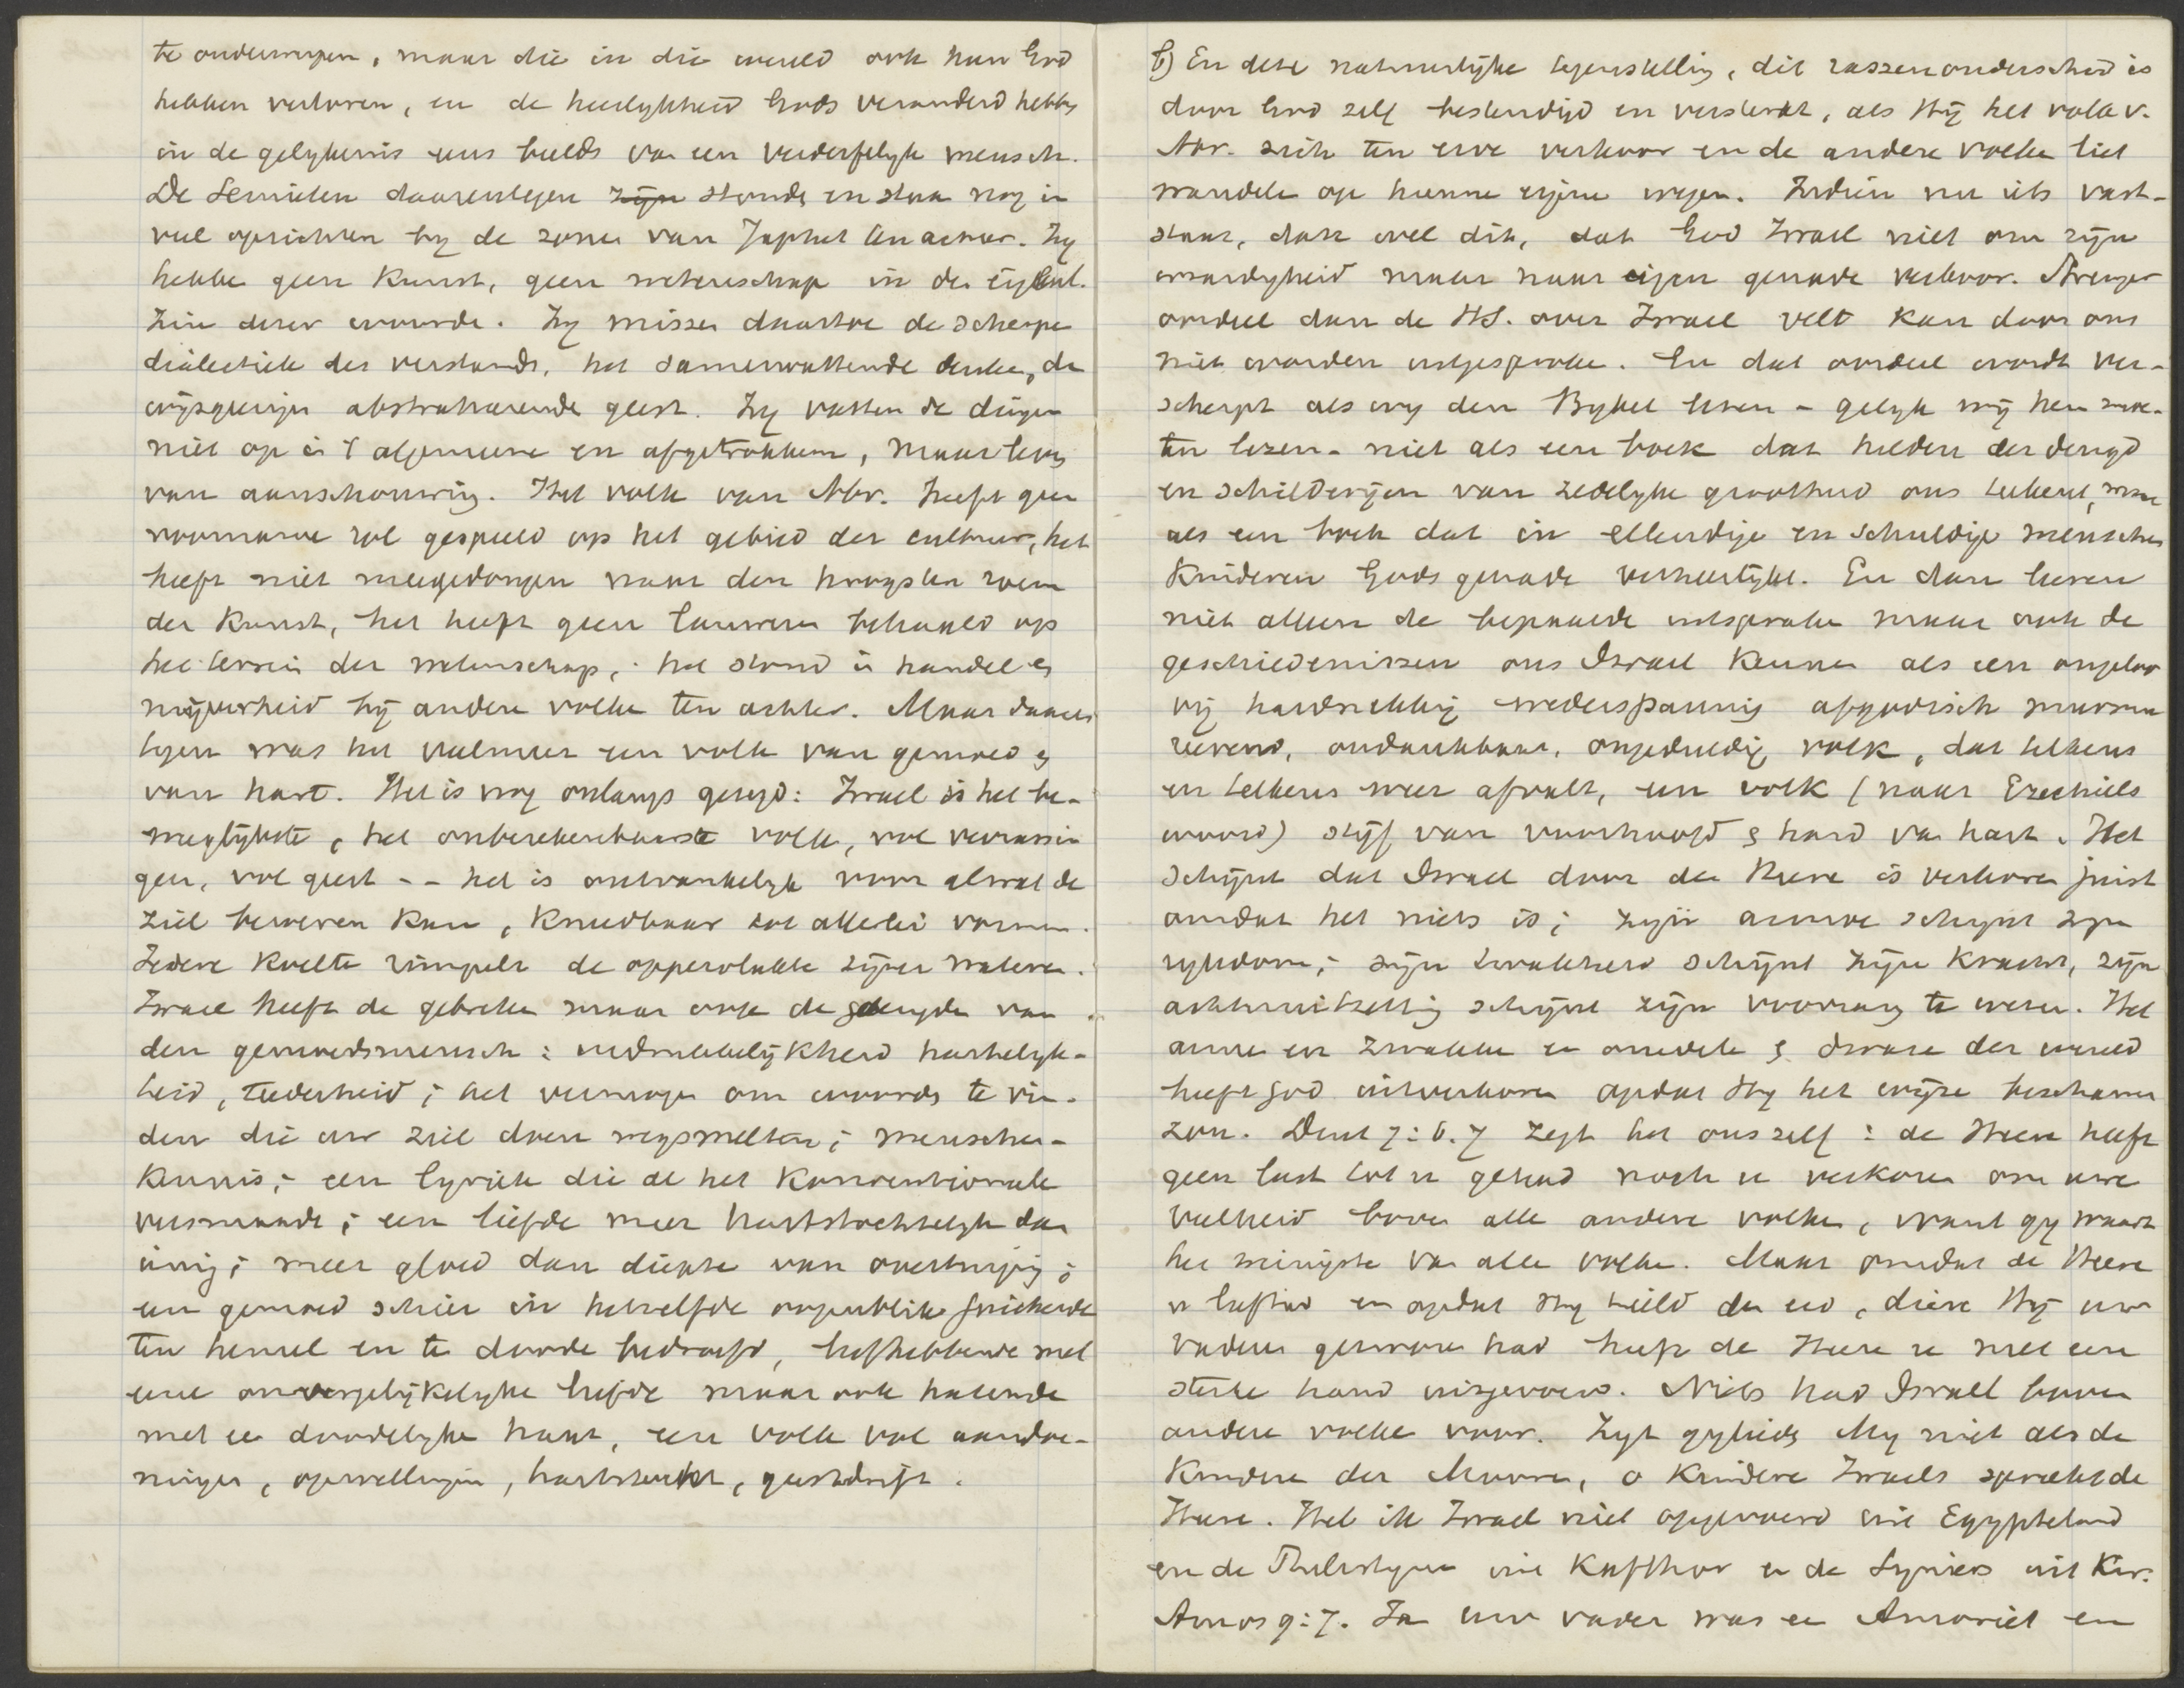 te onderwerpen, maar die in die wereld ook hun God
hebben verloren, en de heerlykheid Gods veranderd hebbe
in de gelykenis eens beelds van een verderfelyk mensch.
De Semieten daarentegen zijn stonde en staan nog in
veel opzichten by de zonen van Japhet ten achter. Zy
hebbe geen Kunst, geen wetenschap in de eigenl.
Zin dezer woorde. Zy missen daartoe de scherpe
dialectiek des verstands, het samenvattende denke, de
wijsgeerige abstraheerende geest. Zy vatten de dingen
niet op in 't algemeene en afgetrokkene, maar leve
van aanschouwing. Het volk van Abr. heeft geen
voorname rol gespeeld op het gebied der cultuur, het
heeft niet meegedongen naar den hoogsten roem
der Kunst, het heeft geen lauweren behaald op
het terrein der wetenschap, het stond in handel en
nijverheid bij andere volke ten achter. Maar daaren
tegen was het veelmeer een volk van gemoed en
van hart. Het is nog onlangs gezegd: Israel is het be-
weglijkste, het onberekenbaarste volk, vol verrassin
gen, vol geest -- het is ontvankelijk voor alwat de
ziel beroeren kan, kneedbaar tot allerlei vormen.
Iedere koelte rimpelt de oppervlakte zijner wateren.
Israel heeft de gebreken maar ook de deugden van
den gemoedsmensch: mededeelzaamheid hartelyk-
heid, teederheid; het vermogen om woorden te vin-
den die uw ziel doen wegsmelten; menschen-
kennis; een lyriek die de het Konventioneele
versmaadt; een liefde meer hartstochtelyk dan
innig; meer gloed dan diepte van overtuiging;
een gemoed schier in hetzelfde oogenblik juichende
ten hemel en te doode bedroefd, liefhebbende met
eene onvergelijkelyke liefde maar ook hatende
met een doodelyke haat, een volk vol aandoe-
ningen, opwellingen, hartstocht, geestdrift.
b) En deze natuurlijke tegenstelling, dit rassenonderscheid is
door God zelf bestendigd en versterkt, als Hij het volk v.
Abr. zich ten erve verkoor en de andere volke liet
wandele op hunne eigene wegen. Indien nu iets vast-
staat, dan wel dit, dat God Israel niet om zijn
waardigheid maar naar eigen genade verkoor. Strenger
oordeel dan de HS. over Israel velt kan door ons
niet worden uitgesproke. En dat oordeel wordt ver-
scherpt als wy den Bybel lezen - gelyk wij hem moe-
ten lezen - niet als een boek dat helden der deugd
en schilderijen van zedelyke grootheid ons teekent, maar
als een boek dat in ellendige en schuldige menschen
Kinderen Gods genade verheerlijkt. En dan leeren
niet alleen de bepaalde uitspraken maar ook de
geschiedenissen ons Israel kennen als een ongeloo
vig hardnekkig wederspannig afgodisch murmu
reerend, ondankbaar, ongeduldig volk, dat telkens
en telkens weer afvalt, een volk (naar Ezechiels
woord) stijf van voorhoofd en hard van hart. Het
schijnt dat Israel door den Heere is verkoren juist
omdat het niets is; zijn armoe schijnt zijn
rykdom; zijn zwakheid schijnt zijn kracht, zijn
achteruitzetting schijnt zijn voorrang te wezen. Het
arme en zwakke en onedele en dwaze der wereld
heeft God uitverkoren opdat Hy het wijze beschamen
zou. Deut 7:6.7 zegt het ons zelf: de Heere heeft
geen lust tot u gehad noch u verkoren om uwe
veelheid boven alle andere volken, want gy waart
het weinigste van alle volken. Maar omdat de Heere
u liefhad en opdat Hy hield den eed, dien Hij uw
vaderen gezworen had heeft de Heere u met een
sterke hand uitgevoerd. Niets had Israel boven
andere volke voor. Zyt gylieden My niet als de
Kinderen der Mooren, o Kinderen Israels spreekt de
Heere. Heb ik Israel niet opgevoerd uit Egypteland
en de Philistynen uit Kafthor en de Syriers uit Kir.
Amos 9:7. Ja uw vader was een Amoriet en